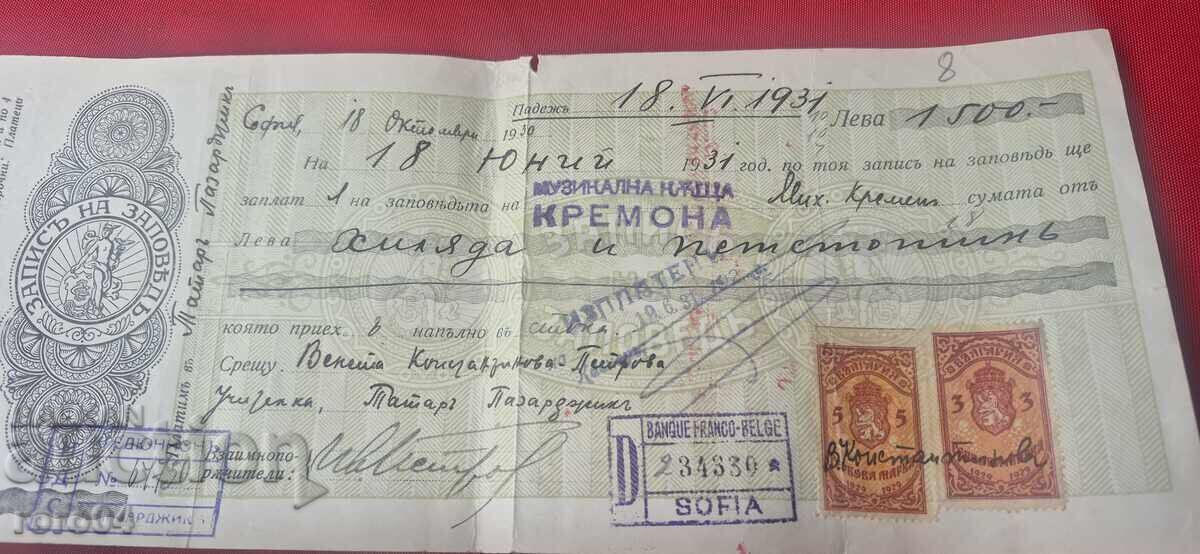 8
Падежъ 18. VI. 1931
София, 18 Октомври 1930
Лева 1500.-
На 18 Юний 1931 год. по тоя запись на заповѣдь ще
заплат я на заповѣдьта на
МУЗИКАЛНА КѪЩА
КРЕМОНА
Мих. Кремен сумата отъ
Лева Хиляда и петстотинь
ИЗПЛАТЕН
която приех в напълно въ стока.
Срещу Венета Константинова-Петрова
Учителка, Татаръ Пазарджикъ
Взаимнопо-
ржители:
ЗАПИСЪ НА ЗАПОВѢДЬ
Платимъ въ Татаръ Пазарджикъ
Платецъ
D
BANQUE FRANCO-BELGE
234330
SOFIA
БЪЛГАРИЯ
5 5
1929 1929
БЪЛГАРИЯ
3 3
1929 1929
В. Константинова
№